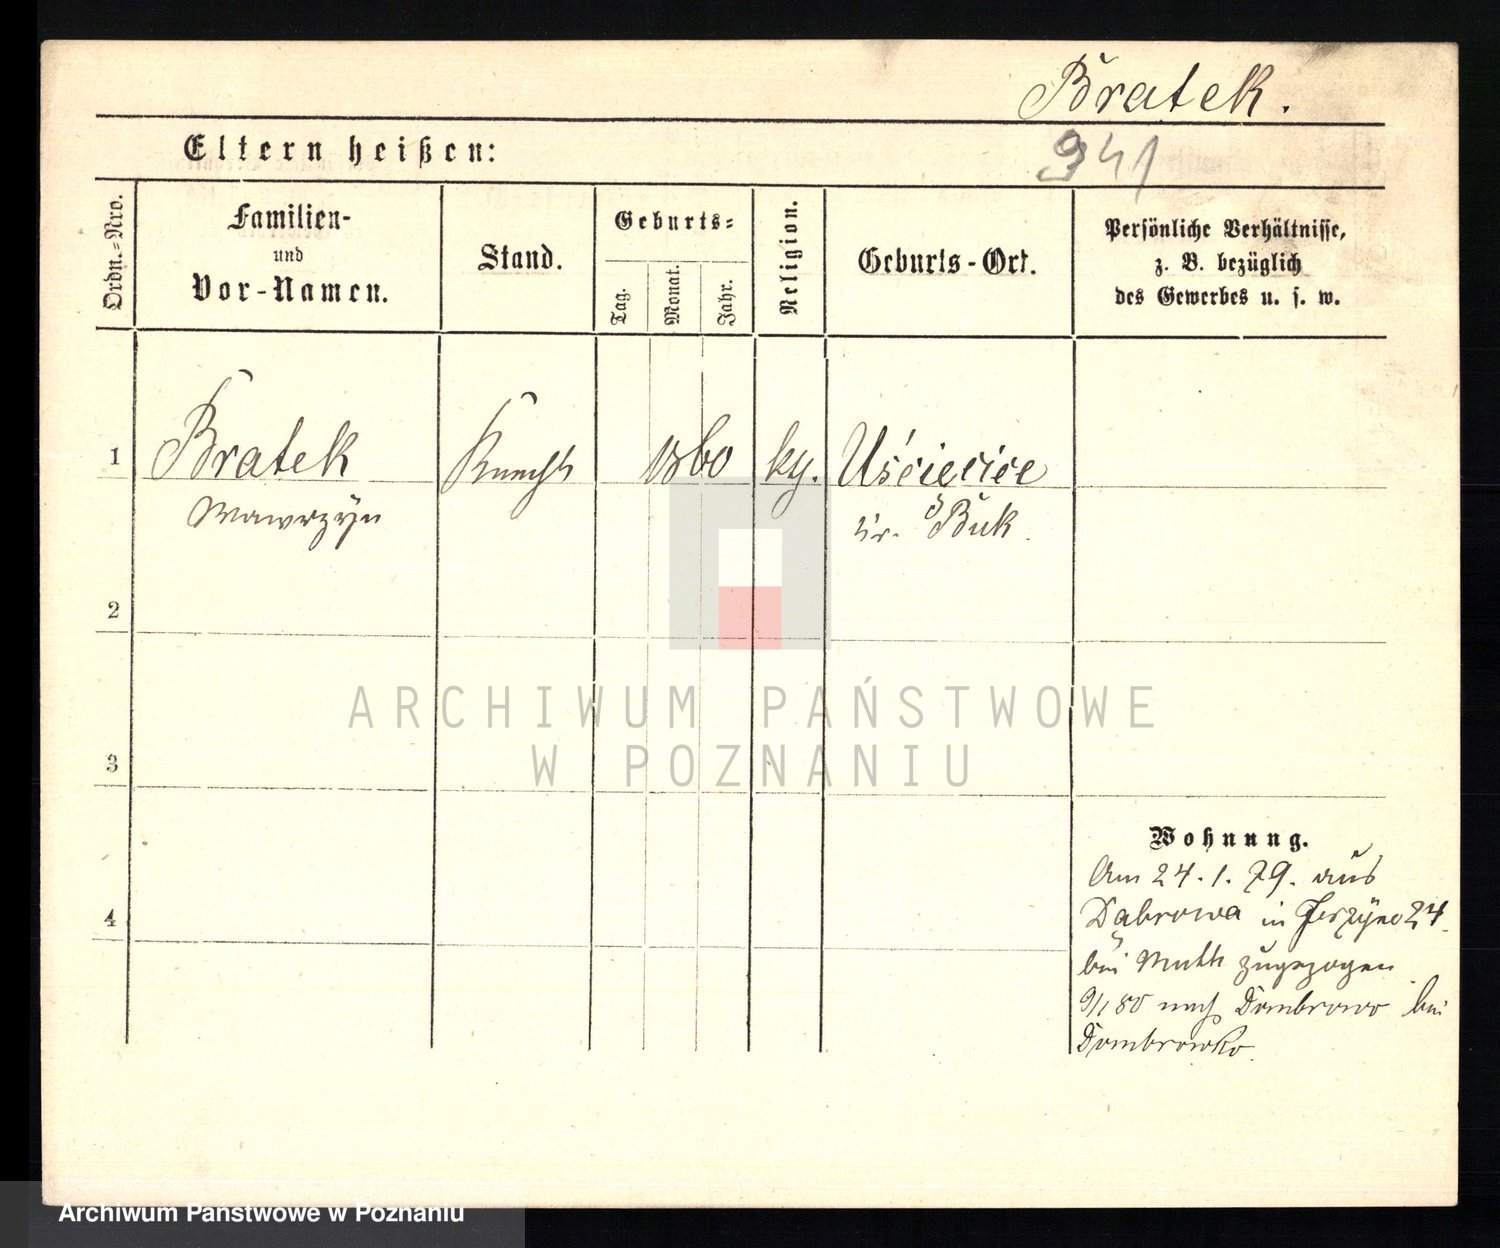 Bratek.
941
Eltern heißen:
Ordn.=Nro.
Familien-
und
Vor-Namen.
Stand.
Geburts=
Tag.
Monat.
Jahr.
Religion.
Geburts-Ort.
Persönliche Verhältnisse,
z. B. bezüglich
des Gewerbes u. s. w.
1
Bratek
Wawrzÿn
Knecht
1860
kg.
Uścięcice
Kr. Buk
2
3
4
ARCHIWUM PAŃSTWOWE
W POZNANIU
Wohnung.
Am 24.1.79. aus
Dąbrowa in Jerzÿce 24.
bei Muth zugezogen
9/1 80 nach Dombrowo bei
Dombrowko
Archiwum Państwowe w Poznaniu